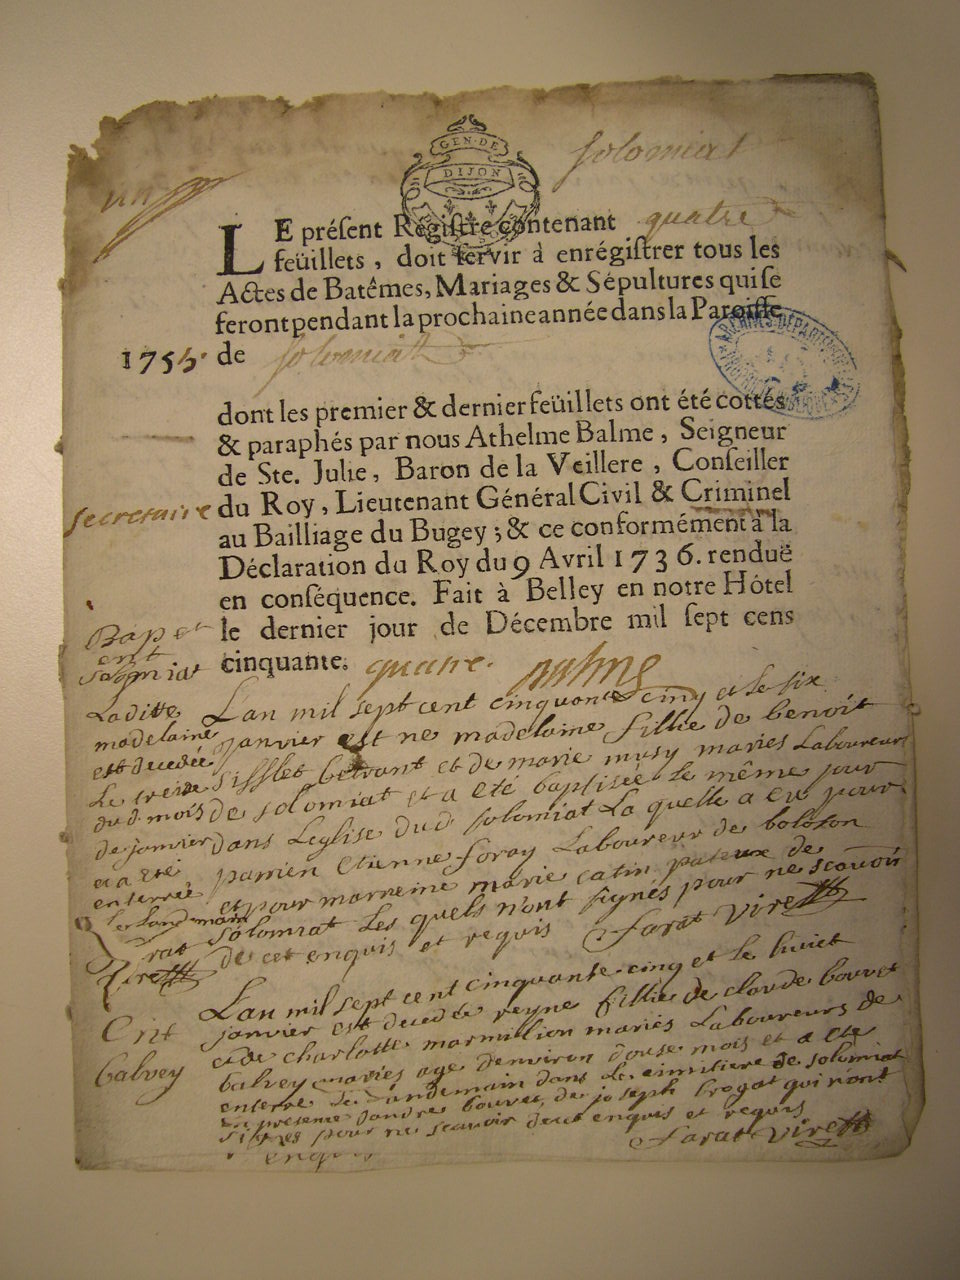 GEN. DE
DIJON
un
Solomiat
LE présent Régistre contenant quatre
feüillets, doit servir à enrégistrer tous les
Actes de Batêmes, Mariages & Sépultures qui se
feront pendant la prochaine année dans la Paroisse
1755. de Solomiat
dont les premier & dernier feüillets ont été cottés
& paraphés par nous Athelme Balme, Seigneur
de Ste. Julie, Baron de la Veillere, Conseiller
secretaire du Roy, Lieutenant Général Civil & Criminel
au Bailliage du Bugey; & ce conformément à la
Déclaration du Roy du 9 Avril 1736. renduë
en conséquence. Fait à Belley en notre Hôtel
le dernier jour de Décembre mil sept cens
cinquante. quatre. Balme
Bap et
ent
Solomiat
Laditte
madelaine
est decedée
Le treize
dud. mois
de janvier
et a eté
enterrée
le landemain
Farat
Virett
Lan mil sept cent cinquante cinq et le six
janvier est ne madelaine fillie de benoit
Sifflet et de marie musy maries Laboureurs
de Solomiat et a eté baptisée le même jour
dans Leglise dud Solomiat La quelle a eu pour
parrien Etienne foray Laboureur de
et pour marreme marie catin de
Solomiat Les quels n'ont signés pour ne scavoir
de cet enquis et requis Farat Virett
Ent
Balvey
Lan mil sept cent cinquante cinq et le huict
janvier est decedée reyne fillie de claude bouvet
et de charlotte marmillion mariés Laboureurs de
balvey age denviron douse mois et a eté
enterré le landemain dans le cimitiere de Solomiat
en presence dandre bouvet de joseph brogat qui n'ont
signés pour ne scavoir deux enquis et requis
Farat Virett
enquis